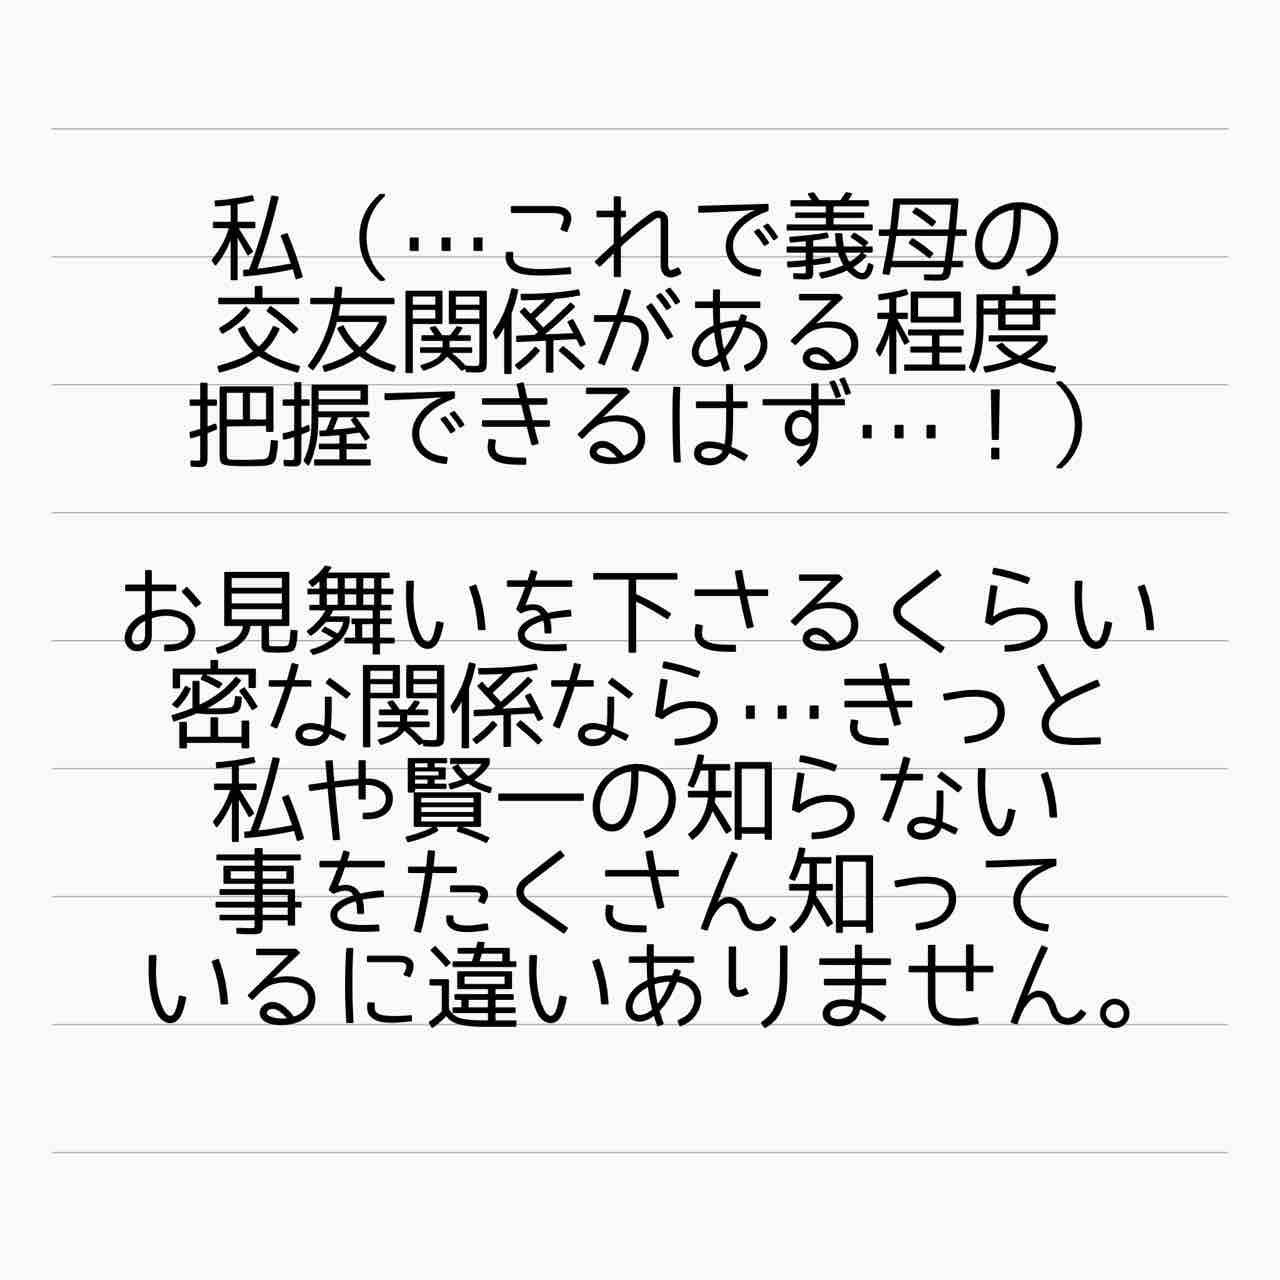 私（…これで義母の
交友関係がある程度
把握できるはず…！）
お見舞いを下さるくらい
密な関係なら…きっと
私や賢一の知らない
事をたくさん知って
いるに違いありません。